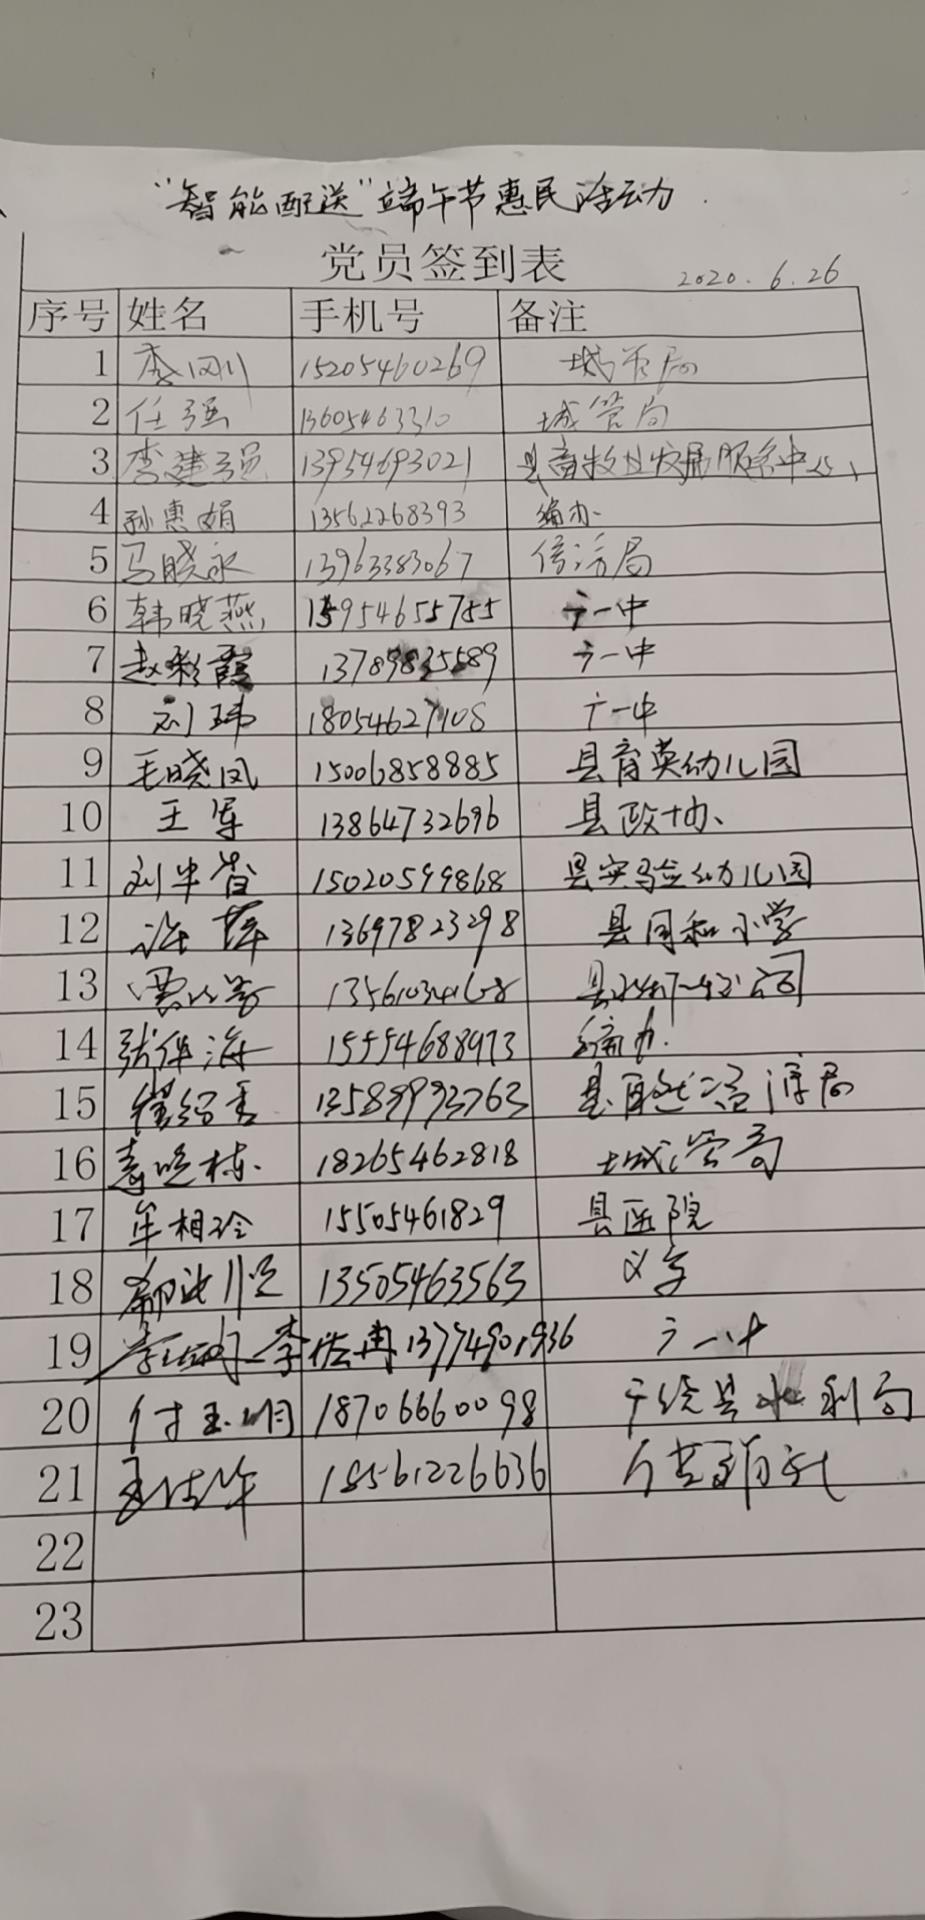 "智能配送"端午节惠民活动
党员签到表 2020.6.26
序号 姓名 手机号 备注
1 李刚 15205460269 城管局
2 任强 13605463310 城管局
3 李建强 13954693021 县畜牧业发展服务中心
4 孙惠娟 13562268393 编办
5 马晓永 13963383067 信访局
6 韩晓燕 15954655755 广一中
7 赵彩霞 13789835589 广一中
8 刘玮 18054627108 广一中
9 毛晓凤 15006858885 县育英幼儿园
10 王军 13864732696 县政协
11 刘 15020599868 县实验幼儿园
12 许萍 13697823298 县同和小学
13 13561034168 县
14 张伟海 15554688973 编办
15 13589993763 县自然资源局
16 栋 18265462818 城管局
17 牟相玲 15505461829 县医院
18 13505463563
19 李 13774901936 广一中
20 付玉明 18706660098 广饶县水利局
21 18561226636
22
23